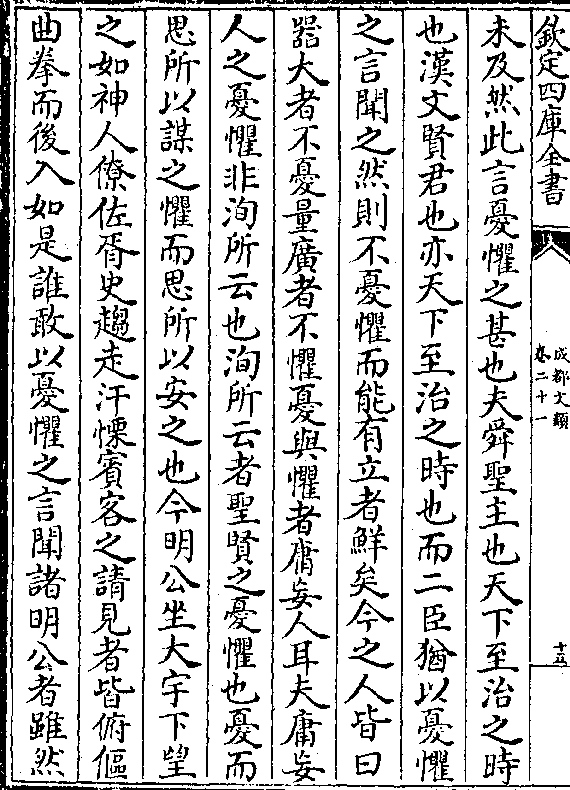 欽定四庫全書
成都文類
卷二十一
十五
未及然此言憂懼之甚也夫舜聖主也天下至治之時
也漢文賢君也亦天下至治之時也而二臣猶以憂懼
之言聞之然則不憂懼而能有立者鮮矣今之人皆曰
器大者不憂量廣者不懼憂與懼者庸妄人耳夫庸妄
人之憂懼非洵所云也洵所云者聖賢之憂懼也憂而
思所以謀之懼而思所以安之也今明公坐大宇下望
之如神人僚佐胥史趨走汗慄賓客之請見者皆俯傴
曲拳而後入如是誰敢以憂懼之言聞諸明公者雖然